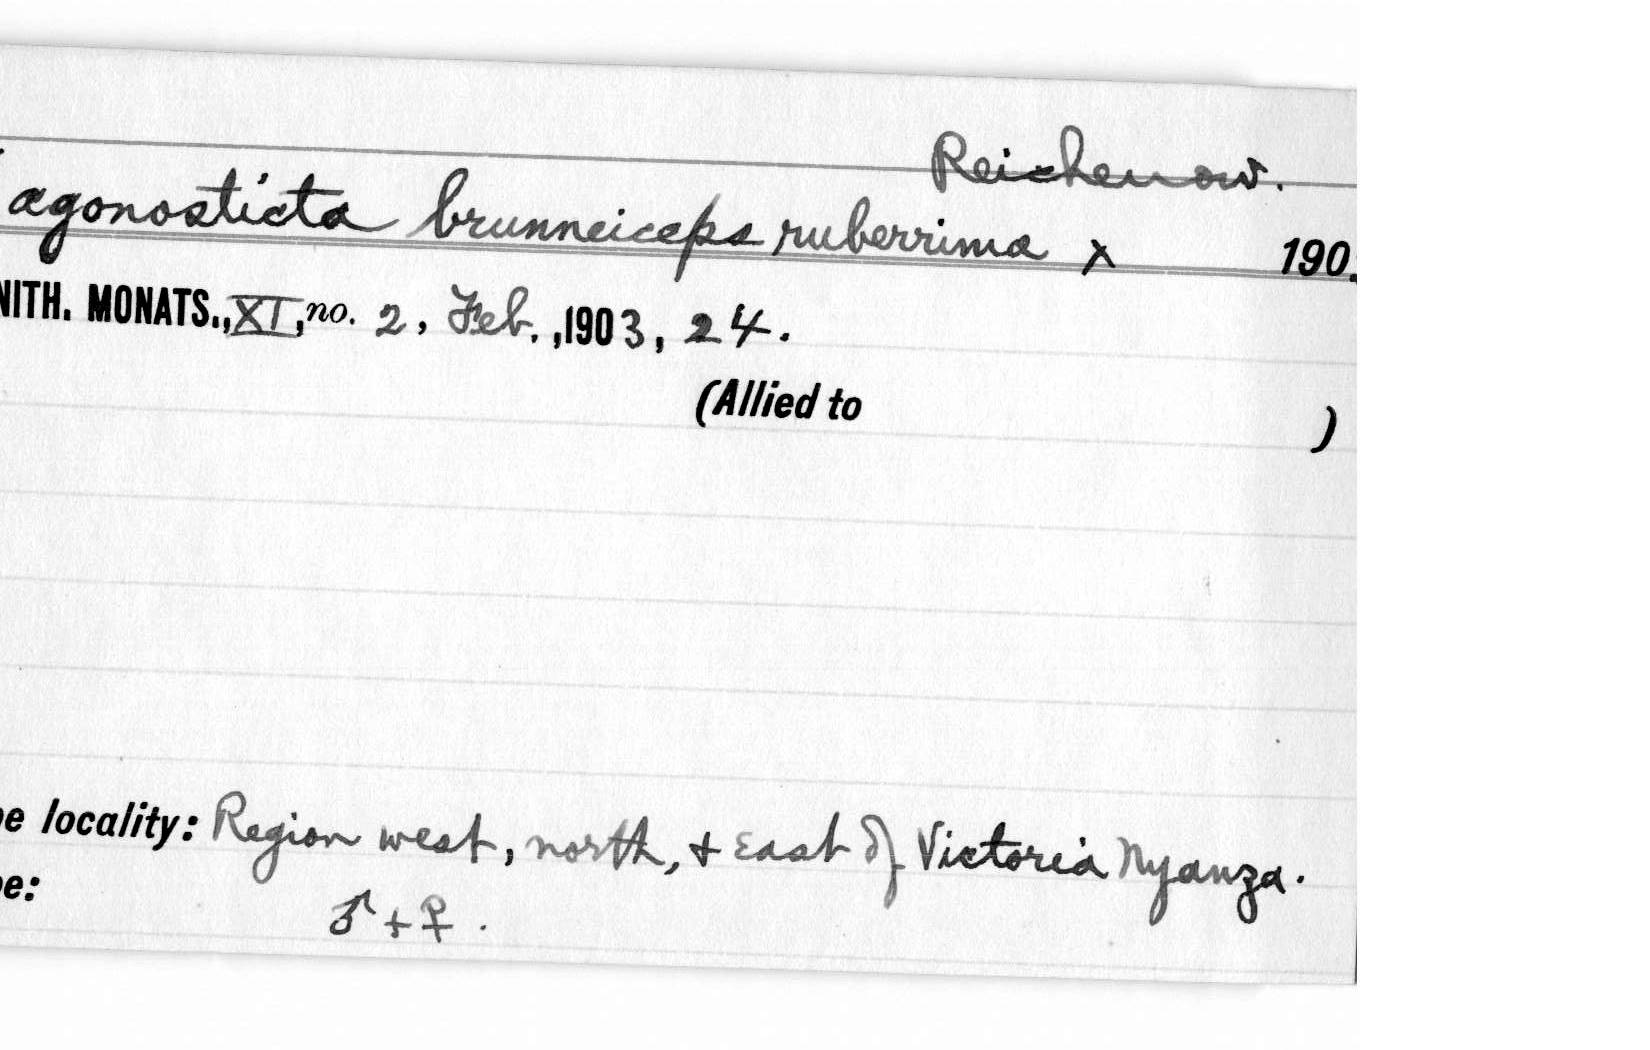 Reichenow.
agonosticta brunneiceps ruberrima x 190
NITH. MONATS., XI, no. 2, Feb., 1903, 24.
(Allied to )
e locality: Region west, north, + East of Victoria Nyanza.
e: ♂ + ♀.